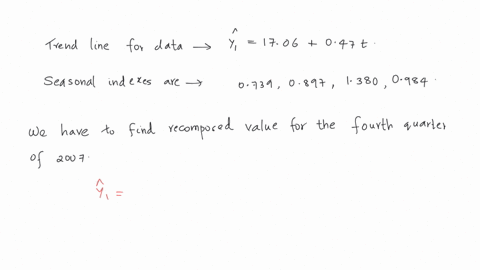 Trend line for data → Ŷ₁ = 17.06 + 0.47 t.
Seasonal indexes are → 0.739, 0.897, 1.380, 0.984.
We have to find recomposed value for the fourth quarter
of 2007.
Ŷ₁ =